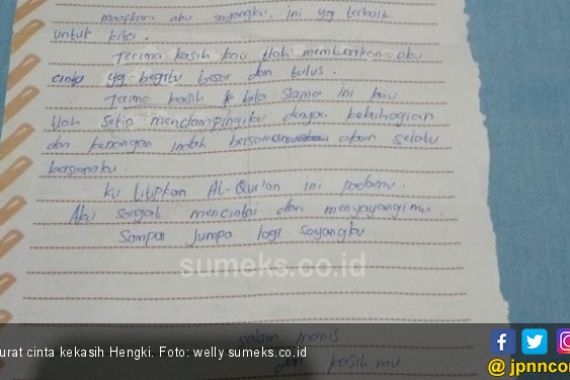 maafkan aku sayangku, ini yg terbaik
untuk kita.
Terima kasih kau tlah memberikan aku
cinta yg begitu besar dan tulus.
Terima kasih bila slama ini kau
tlah setia mendampingiku dengan kebahagian
dan kenangan indah akan selalu
bersamaku.
ku titipkan AL-Qur'an ini padamu.
Aku sangat mencintai dan menyayangimu.
Sampai Jumpa lagi Sayangku
sumeks.co.id
salam manis
dari kasih mu
urat cinta kekasih Hengki. Foto: welly sumeks.co.id
@jpnncom